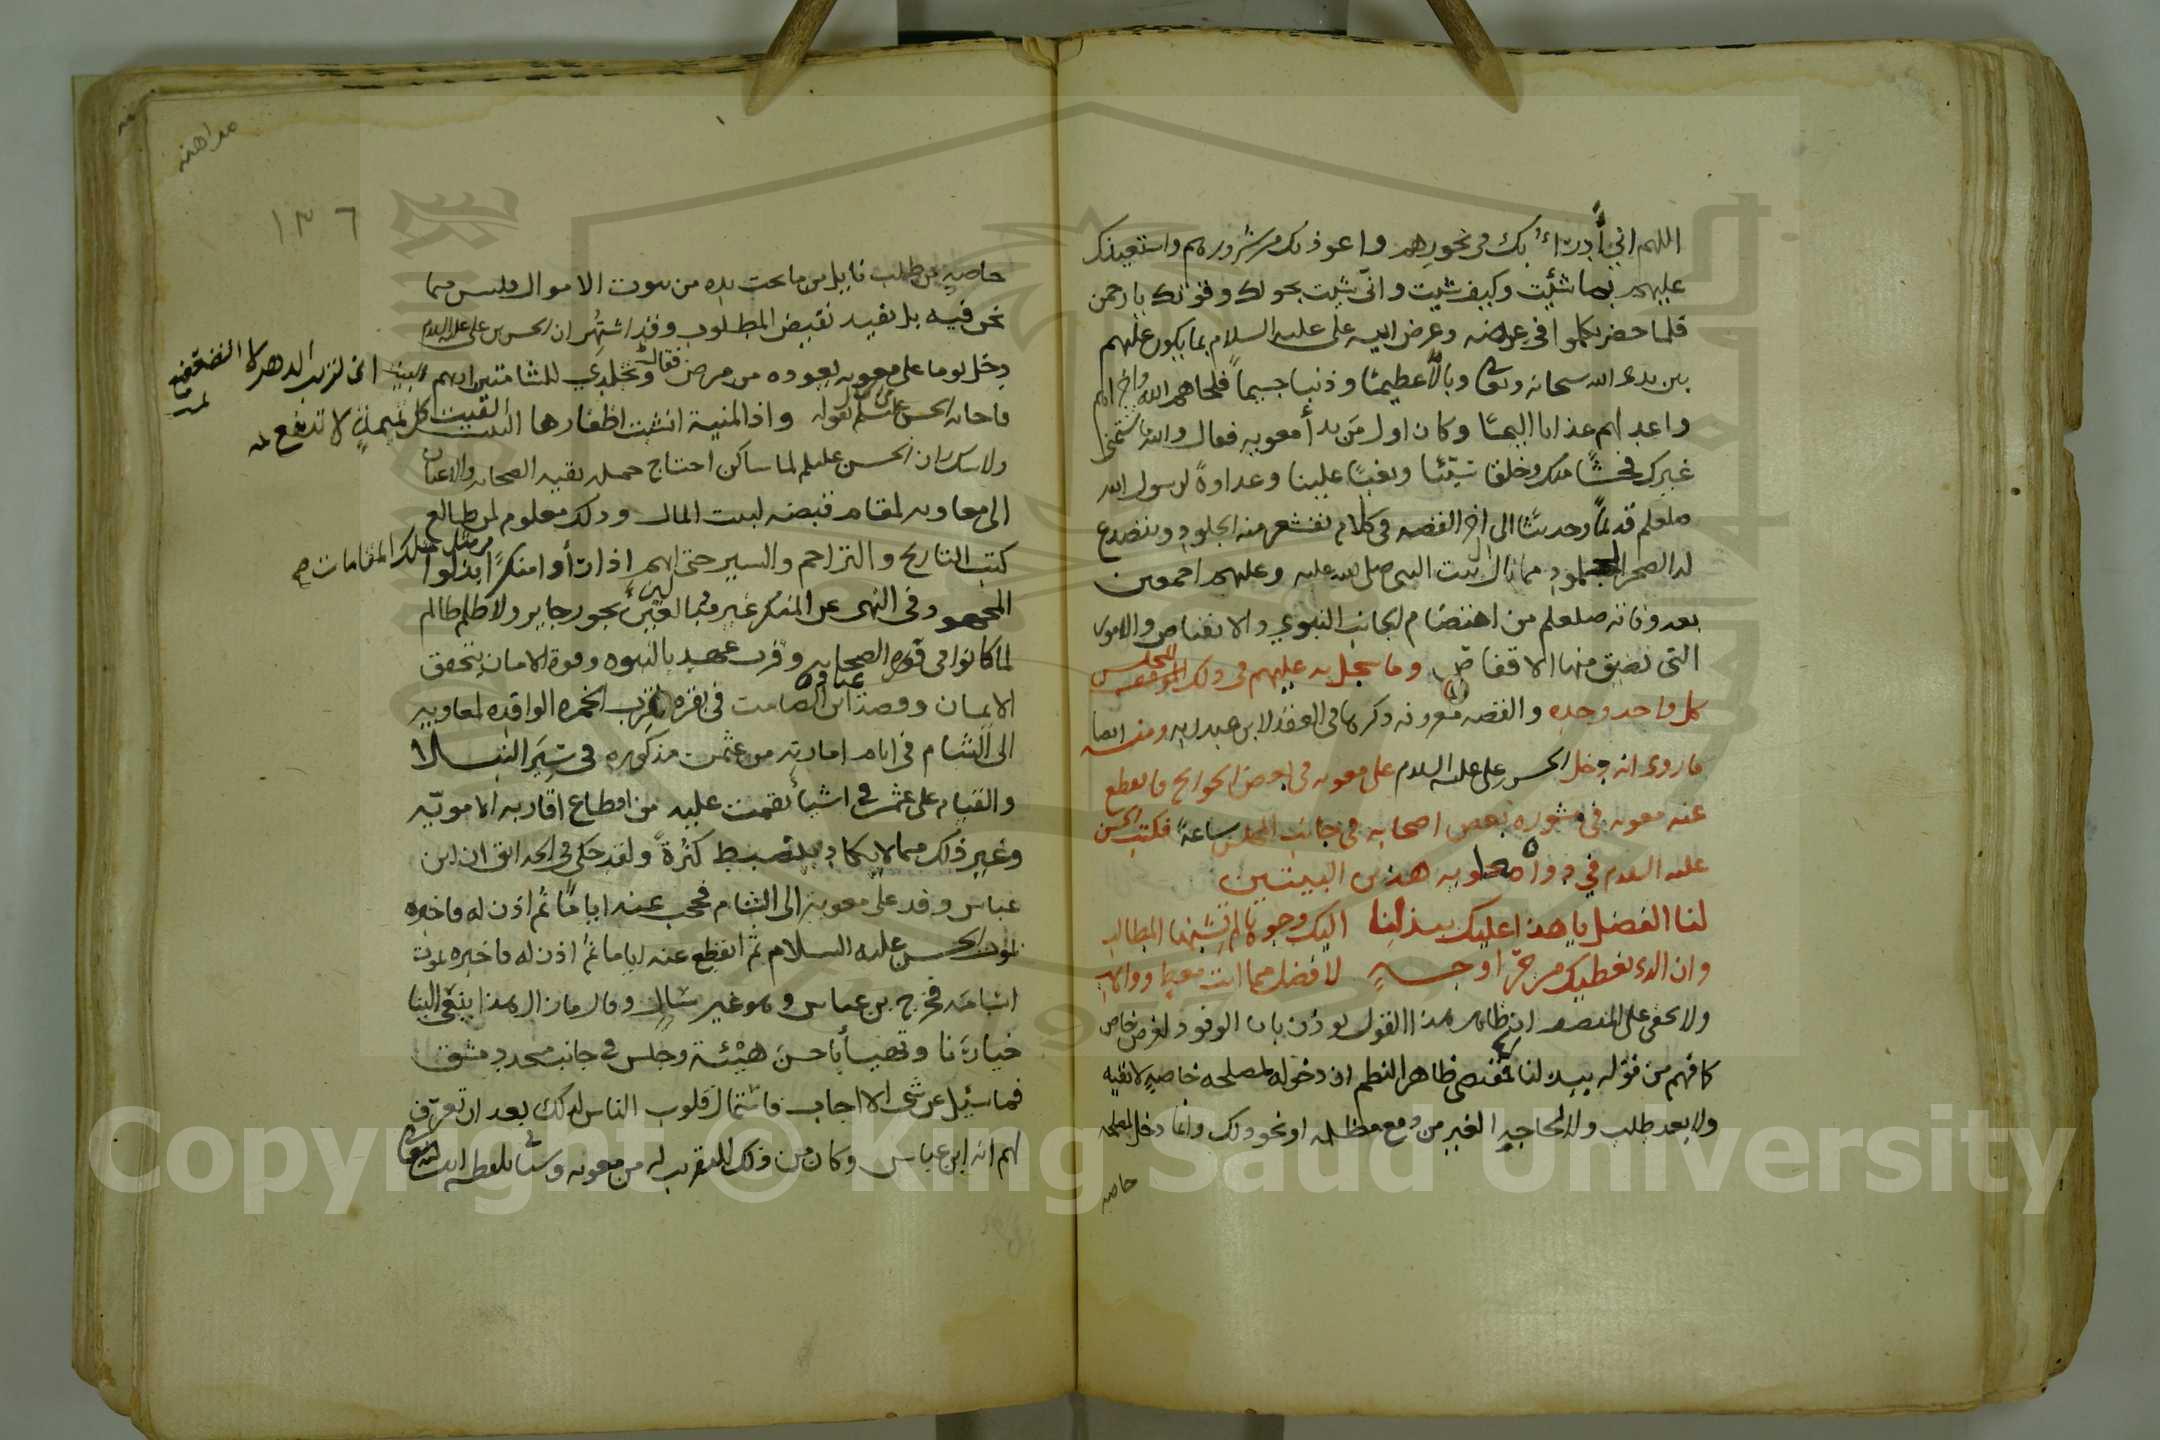 اللهم اني أدرء بك في نحورهم واعوذ بك من شرورهم واستعينك
عليهم بما شئت وكيف شئت وانّى شئت بحولك وقوتك يا رحمن
فلما حضر تكلموا في عرضه وعرض ابيه على عليه السلام بما يكون عليهم
بين يدى الله سبحانه وتعا وبالاً عظيمًا وذنبا جسيماً فلحاهم الله واخزاهم
واعد لهم عذابا اليمًا وكان اول من بدأ معويه فقال والله ما شتمنى
غيرك فحشًا منك وخلقا سيّئا وبغيًا علينا وعداوةً لرسول الله
صلعلم قديماً وحديثًا الى اخر القصه في كلام تقشعر منه الجلود وينصدع
له الصخر الجلمود مما نال ال بيت النبى صلى الله عليه وعليهم اجمعين
بعد وفاته صلعلم من اهتضام الجانب النبوي والانغاص والامور
التى تضيق منها الاقفاص وما سجل به عليهم في ذلك المجلس
كل واحد وحده والقصه معروفه ذكرها في العقد لابن عبد ربه ومنه ايضا
ما روى انه دخل الحسن على عليه السلام على معويه في بعض الحوائج فانقطع
عنه معويه في مشوره بعض اصحابه في جانب المجلس ساعةً فكتب الحسن
عليه السلام في دواة معاويه هذين البيتين
لنا الفضل يا هذا عليك ببذلنا اليك وجوها لم تشنها المطالب
وان الذى نعطيك من حرّ اوجهٍ لافضل مما انت معط وواهب
ولا يخفى على المنصف ان ظاهر هذا القول يوذن بان الوفود لغرض خاص
كما فهم من قوله ببذلنا فمقتضى ظاهر النظم ان دخوله لمصلحه خاصيه لا نفيه
ولا يعد طلب ولا لحاجةِ الغير من دفع مظلمه او نحو ذلك وانما دخل لمصلحه
خاصه
مداهنه
١٣٦
خاصيه من طلب نايل من ما تحت يده من بيوت الاموال فليس مما
نحن فيه بل نفيد نقيض المطلوب وقد اشتهر ان الحسن بن على عليه السلام
دخل يوما على معويه يعوده من مرض فقال وتجلدي للشامتين اريهم انى لريب الدهر لا اتضعضع
فاجابه الحسن عليه السلام بقوله واذا المنية انشبت اظفارها الفيت كل تميمة لا تنفع
ولا شك ان الحسن عليلم لما ساكن احتاج بقيه الصحابه والاعيان
الى معاويه لمقام قبضه لبيت المال وذلك معلوم لمن طالع
كتب التاريخ والتراجم والسير حتى انهم اذا رأوا منكرًا بذلوا
من مثل تلك المقامات صح
المجهود في النهى عن المنكر غير مبالين بجور جاير ولا ظلم ظالم
لما كانوا في قوه الصحابه وقرب عهد بالنبوه وقوة الامان بتحقق
الايمان وقصة عبادة ابن الصامت في بقره قرب الخمره الوافده لمعاويه
الى الشام في ايام امارته من عثمن مذكوره في سِيَر النبلا
والقيام على عثمن في اشياء نقمت عليه من اقطاع اقاربه الامويّه
وغير ذلك مما لا يكاد ينضبط كثرةً ولقد حكى في الحدائق ان ابن
عباس وفد على معوية الى الشام فحجب عنه ايامًا ثم اذن له فاخبره
بموت الحسن عليه السلام ثم انقطع عنه اياما ثم اذن له فاخبره بموت
اسامه فخرج بن عباس وهو غير سالٍ وقال ما زال هذا ينعى الينا
خيارنا وتهيأ باحسن هيْئة وجلس في جانب مسجد دمشق
فما سئيل عن شى الا اجاب فاستمال قلوب الناس لذلك بعد ان تعرف
لهم انه ابن عباس وكان من ذلك التقرب له من معويه